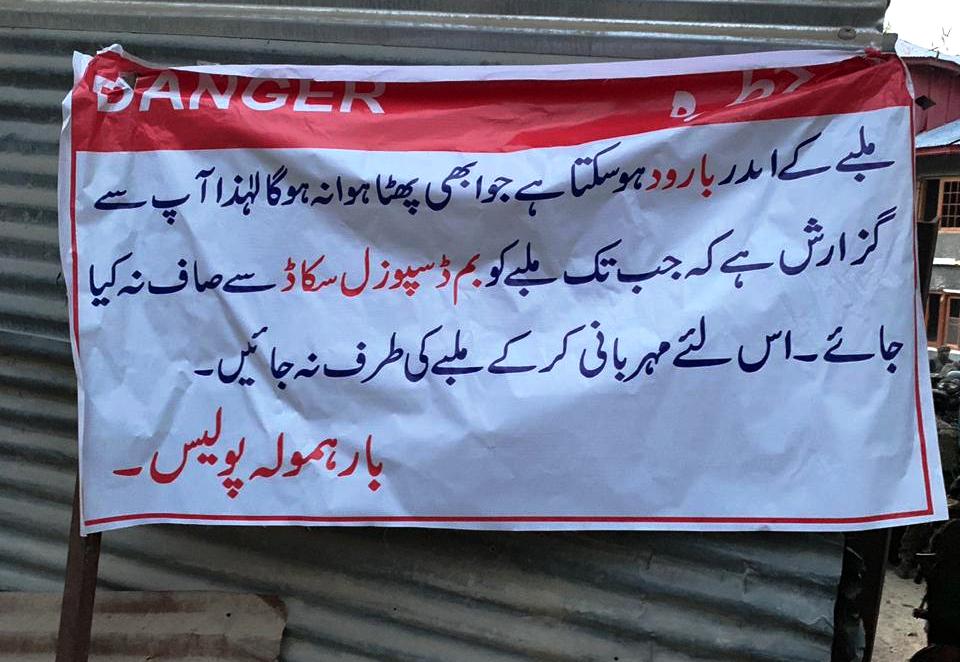 DANGER خطرہ
ملبے کے اندر بارود ہوسکتا ہے جو ابھی پھٹا ہوا نہ ہوگا لہٰذا آپ سے
گزارش ہے کہ جب تک ملبے کو بم ڈسپوزل سکاڈ سے صاف نہ کیا
جائے۔ اس لئے مہربانی کر کے ملبے کی طرف نہ جائیں۔
بارہمولہ پولیس۔